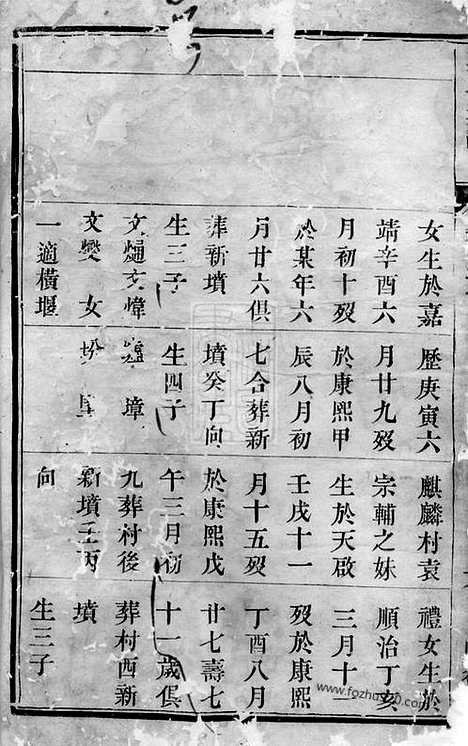 女生於嘉
靖辛酉六
月初十歿
於某年六
月廿六俱
葬新墳
生三子
文 文煒
文爕 女
一適橫堰
歷庚寅六
月廿九歿
於康熙甲
辰八月初
七合葬新
墳癸丁向
生四子
璋
麒麟村袁
宗輔之妹
生於天啟
壬戌十一
月十五歿
於康熙戊
午三月初
九葬村後
新墳壬丙
向
禮女生於
順治丁亥
三月十一
歿於康熙
丁酉八月
廿七壽七
十一歲俱
葬村西新
墳
生三子
www.fozhu920.com